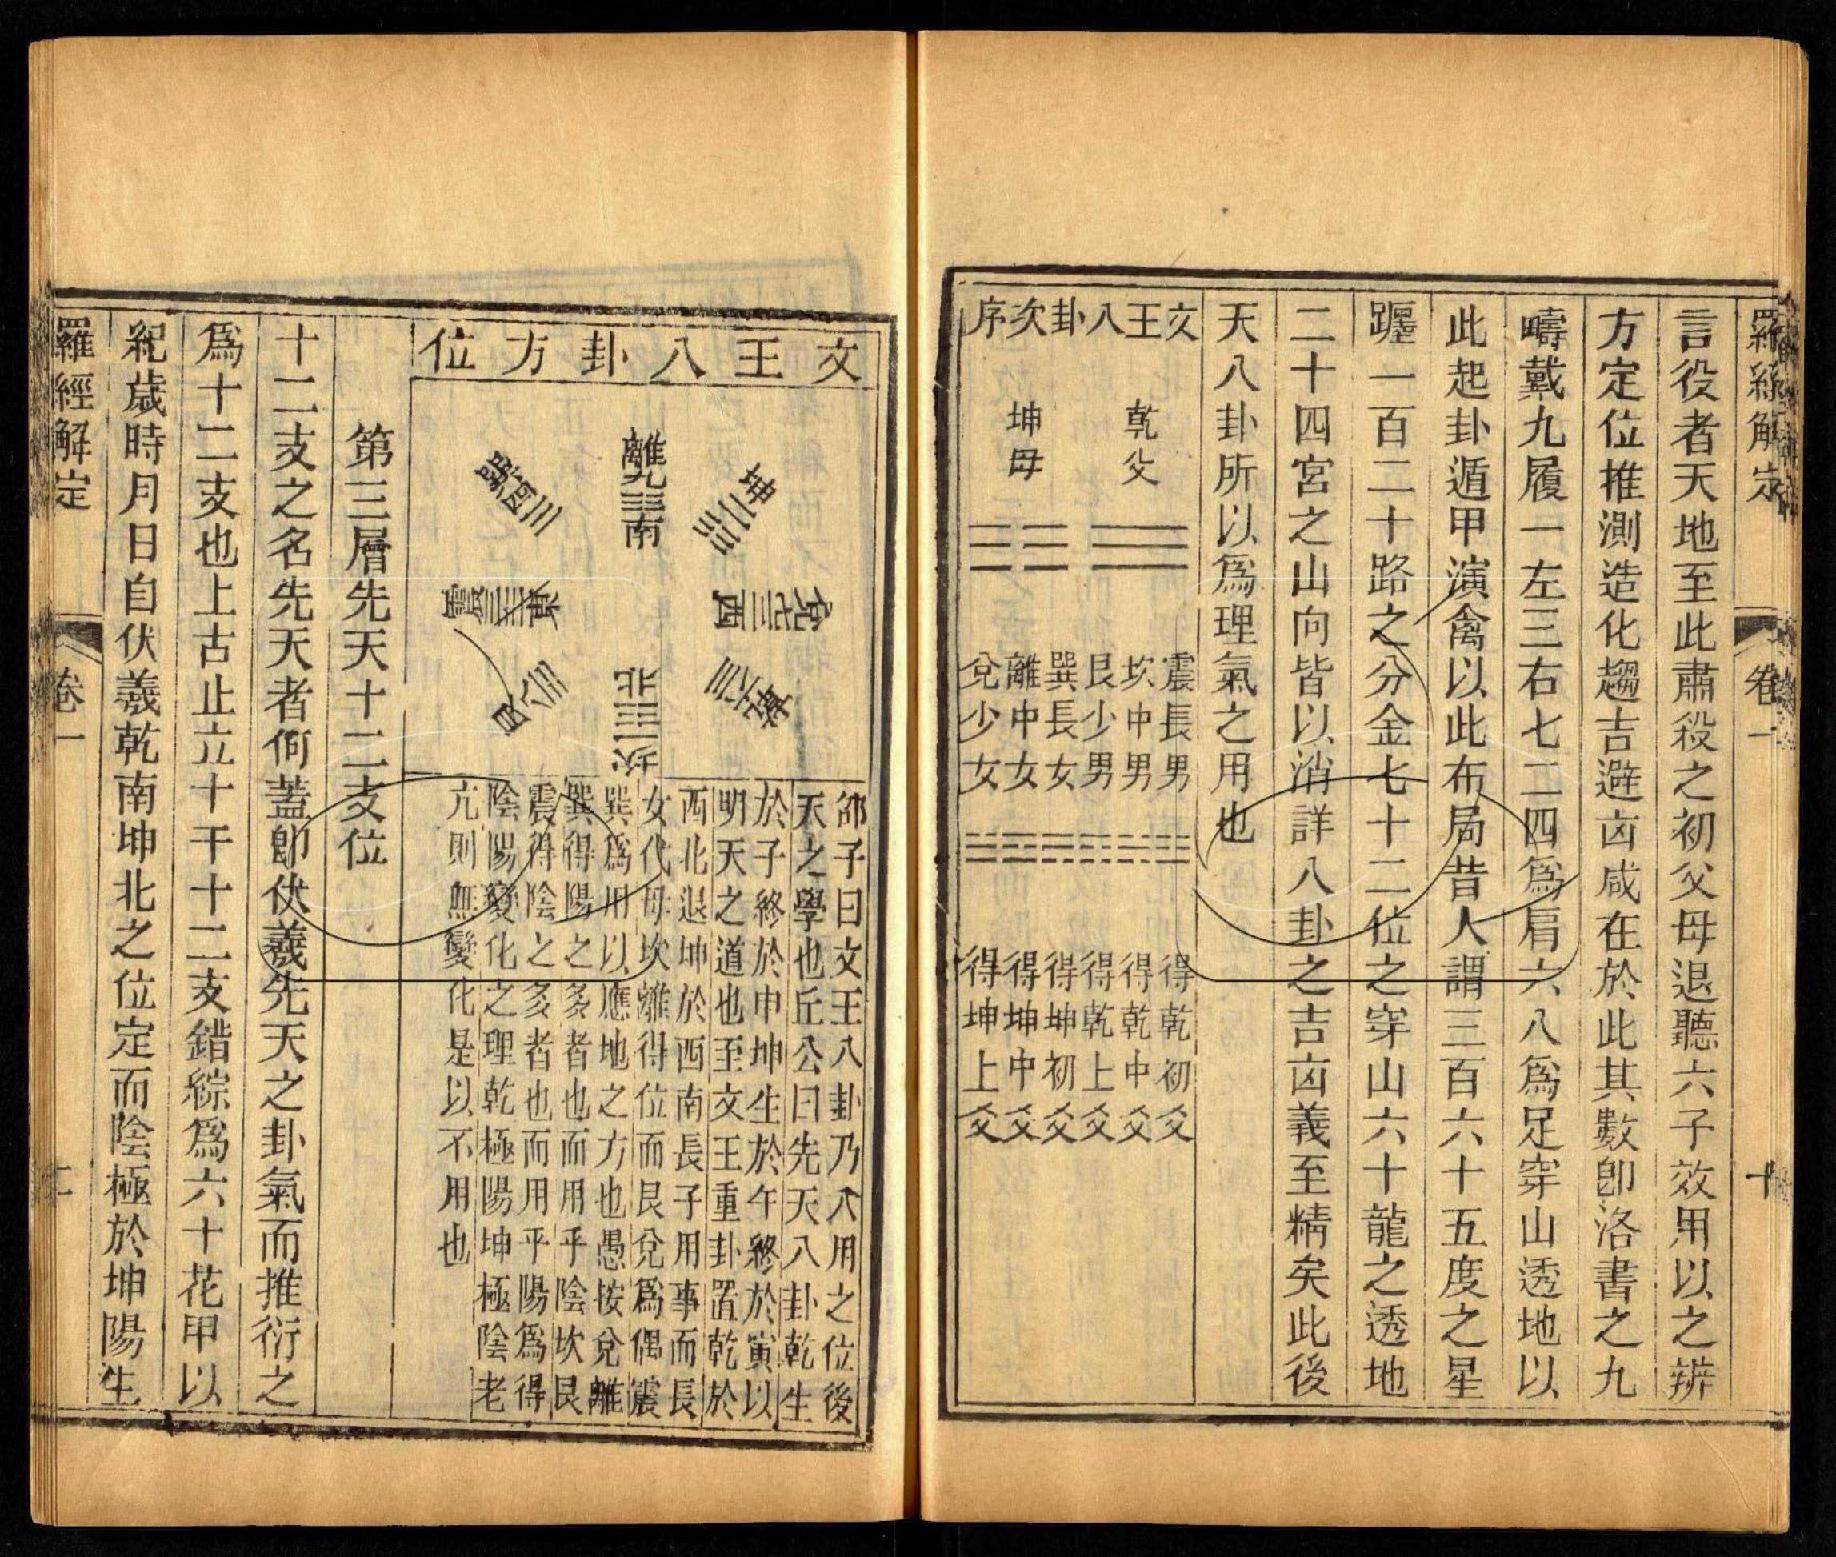 羅經解定
卷一
十
言役者天地至此肅殺之初父母退聽六子效用以之辨
方定位推測造化趨吉避凶咸在於此其數卽洛書之九
疇戴九履一左三右七二四爲肩六八爲足穿山透地以
此起卦遁甲演禽以此布局昔人謂三百六十五度之星
躔一百二十路之分金七十二位之穿山六十龍之透地
二十四宮之山向皆以消詳八卦之吉凶義至精矣此後
天八卦所以爲理氣之用也
文王八卦次序
乾父
坤母
震長男
坎中男
艮少男
巽長女
離中女
兌少女
得乾初爻
得乾中爻
得乾上爻
得坤初爻
得坤中爻
得坤上爻
文王八卦方位
離九南
坤二
兌七西
乾六
坎一北
艮八
震三東
巽四
邵子曰文王八卦乃入用之位後
天之學也丘公曰先天八卦乾生
於子終於申坤生於午終於寅以
明天之道也至文王重卦置乾於
西北退坤於西南長子用事而長
女代母坎離得位而艮兌爲偶震
巽爲用以應地之方也愚按兌離
巽得陽之多者也而用乎陰坎艮
震得陰之多者也而用乎陽爲得
陰陽變化之理乾極陽坤極陰老
亢則無變化是以不用也
第三層先天十二支位
十二支之名先天者何蓋卽伏羲先天之卦氣而推衍之
爲十二支也上古止立十干十二支錯綜爲六十花甲以
紀歲時月日自伏羲乾南坤北之位定而陰極於坤陽生
羅經解定
卷一